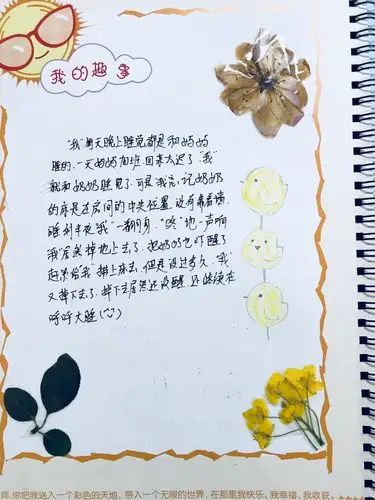 我的趣事
"我"每天晚上睡觉都是和妈妈
睡的、一天妈妈加班、回来太迟了,"我"
就和奶奶睡觉了.可是我忘记奶奶
的床是在房间的中央位置.没有靠着墙.
睡到半夜"我"一翻身."咚"地一声响
"我"居然掉地上去了.把奶奶也吓醒了
赶紧给"我"抱上床去.但是没过多久."我"
又掉下去了.掉下去居然还没醒.还继续在
呼呼大睡
师,你把我送入一个彩色的天地,带入一个无限的世界,在那里我快乐、我幸福、我收获。